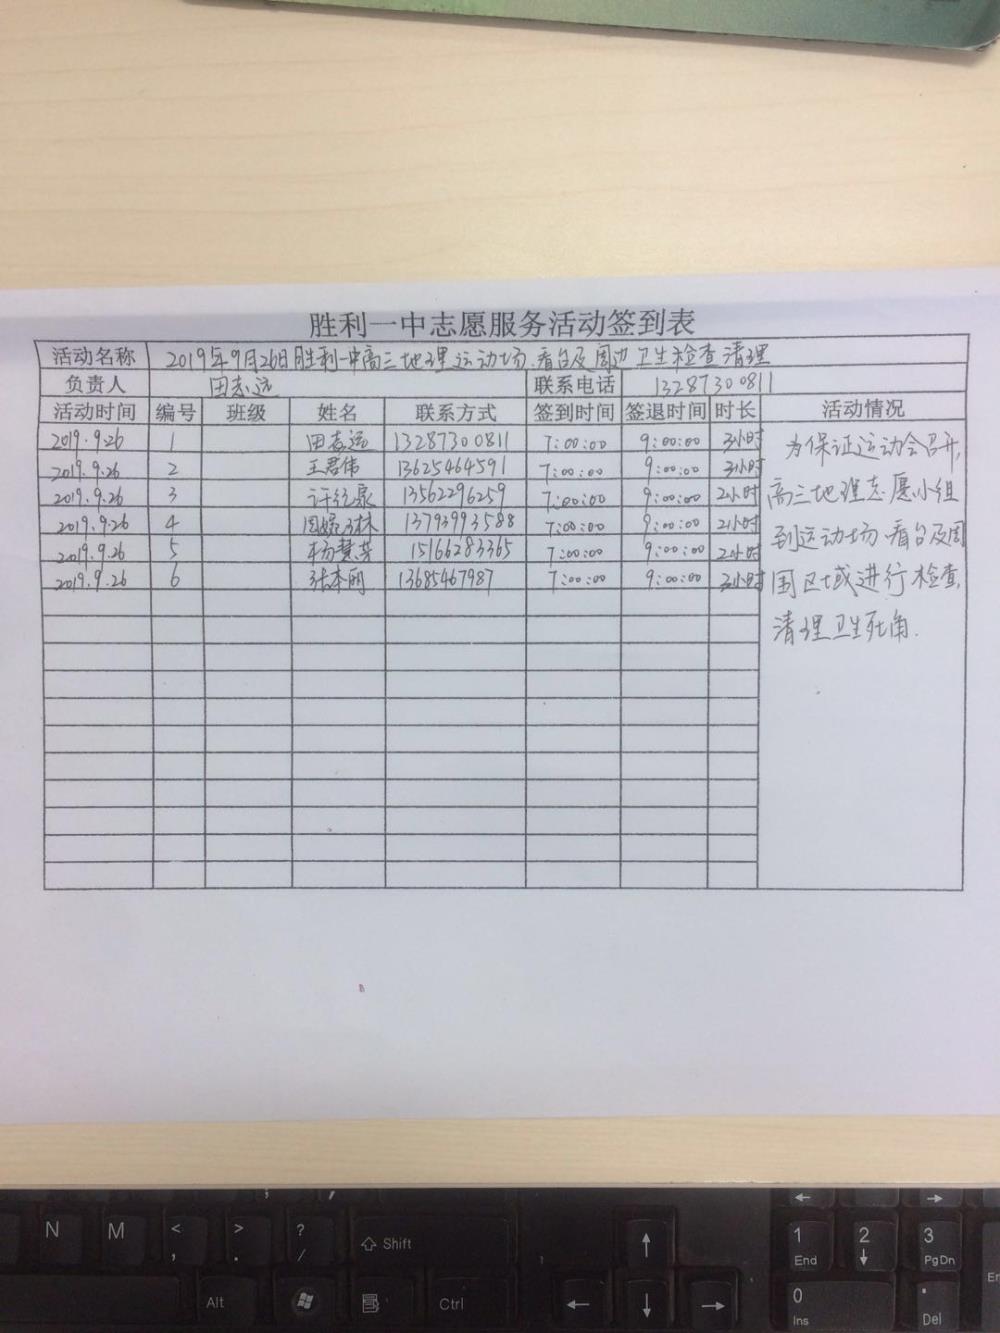 胜利一中志愿服务活动签到表
活动名称 2019年9月26日胜利一中高三地理运动场、看台及周边卫生检查清理
负责人 田志远 联系电话 13287300811
活动时间 编号 班级 姓名 联系方式 签到时间 签退时间 时长 活动情况
2019.9.26 1 田志远 13287300811 7:00:00 9:00:00 小时
2019.9.26 2 王君伟 13625464591 7:00:00 9:00:00 小时
2019.9.26 3 13562296259 7:00:00 9:00:00 2小时
2019.9.26 4 13793993588 7:00:00 9:00:00 2小时
2019.9.26 5 杨慧芳 15166283365 7:00:00 9:00:00 2小时
2019.9.26 6 张本丽 13685467987 7:00:00 9:00:00 小时
为保证运动会召开,
高三地理志愿小组
到运动场、看台及周
围区域进行检查,
清理卫生死角.
N M < , > . ? / Shift
1 End 2 3 PgDn
Alt Ctrl 0 Ins . Del